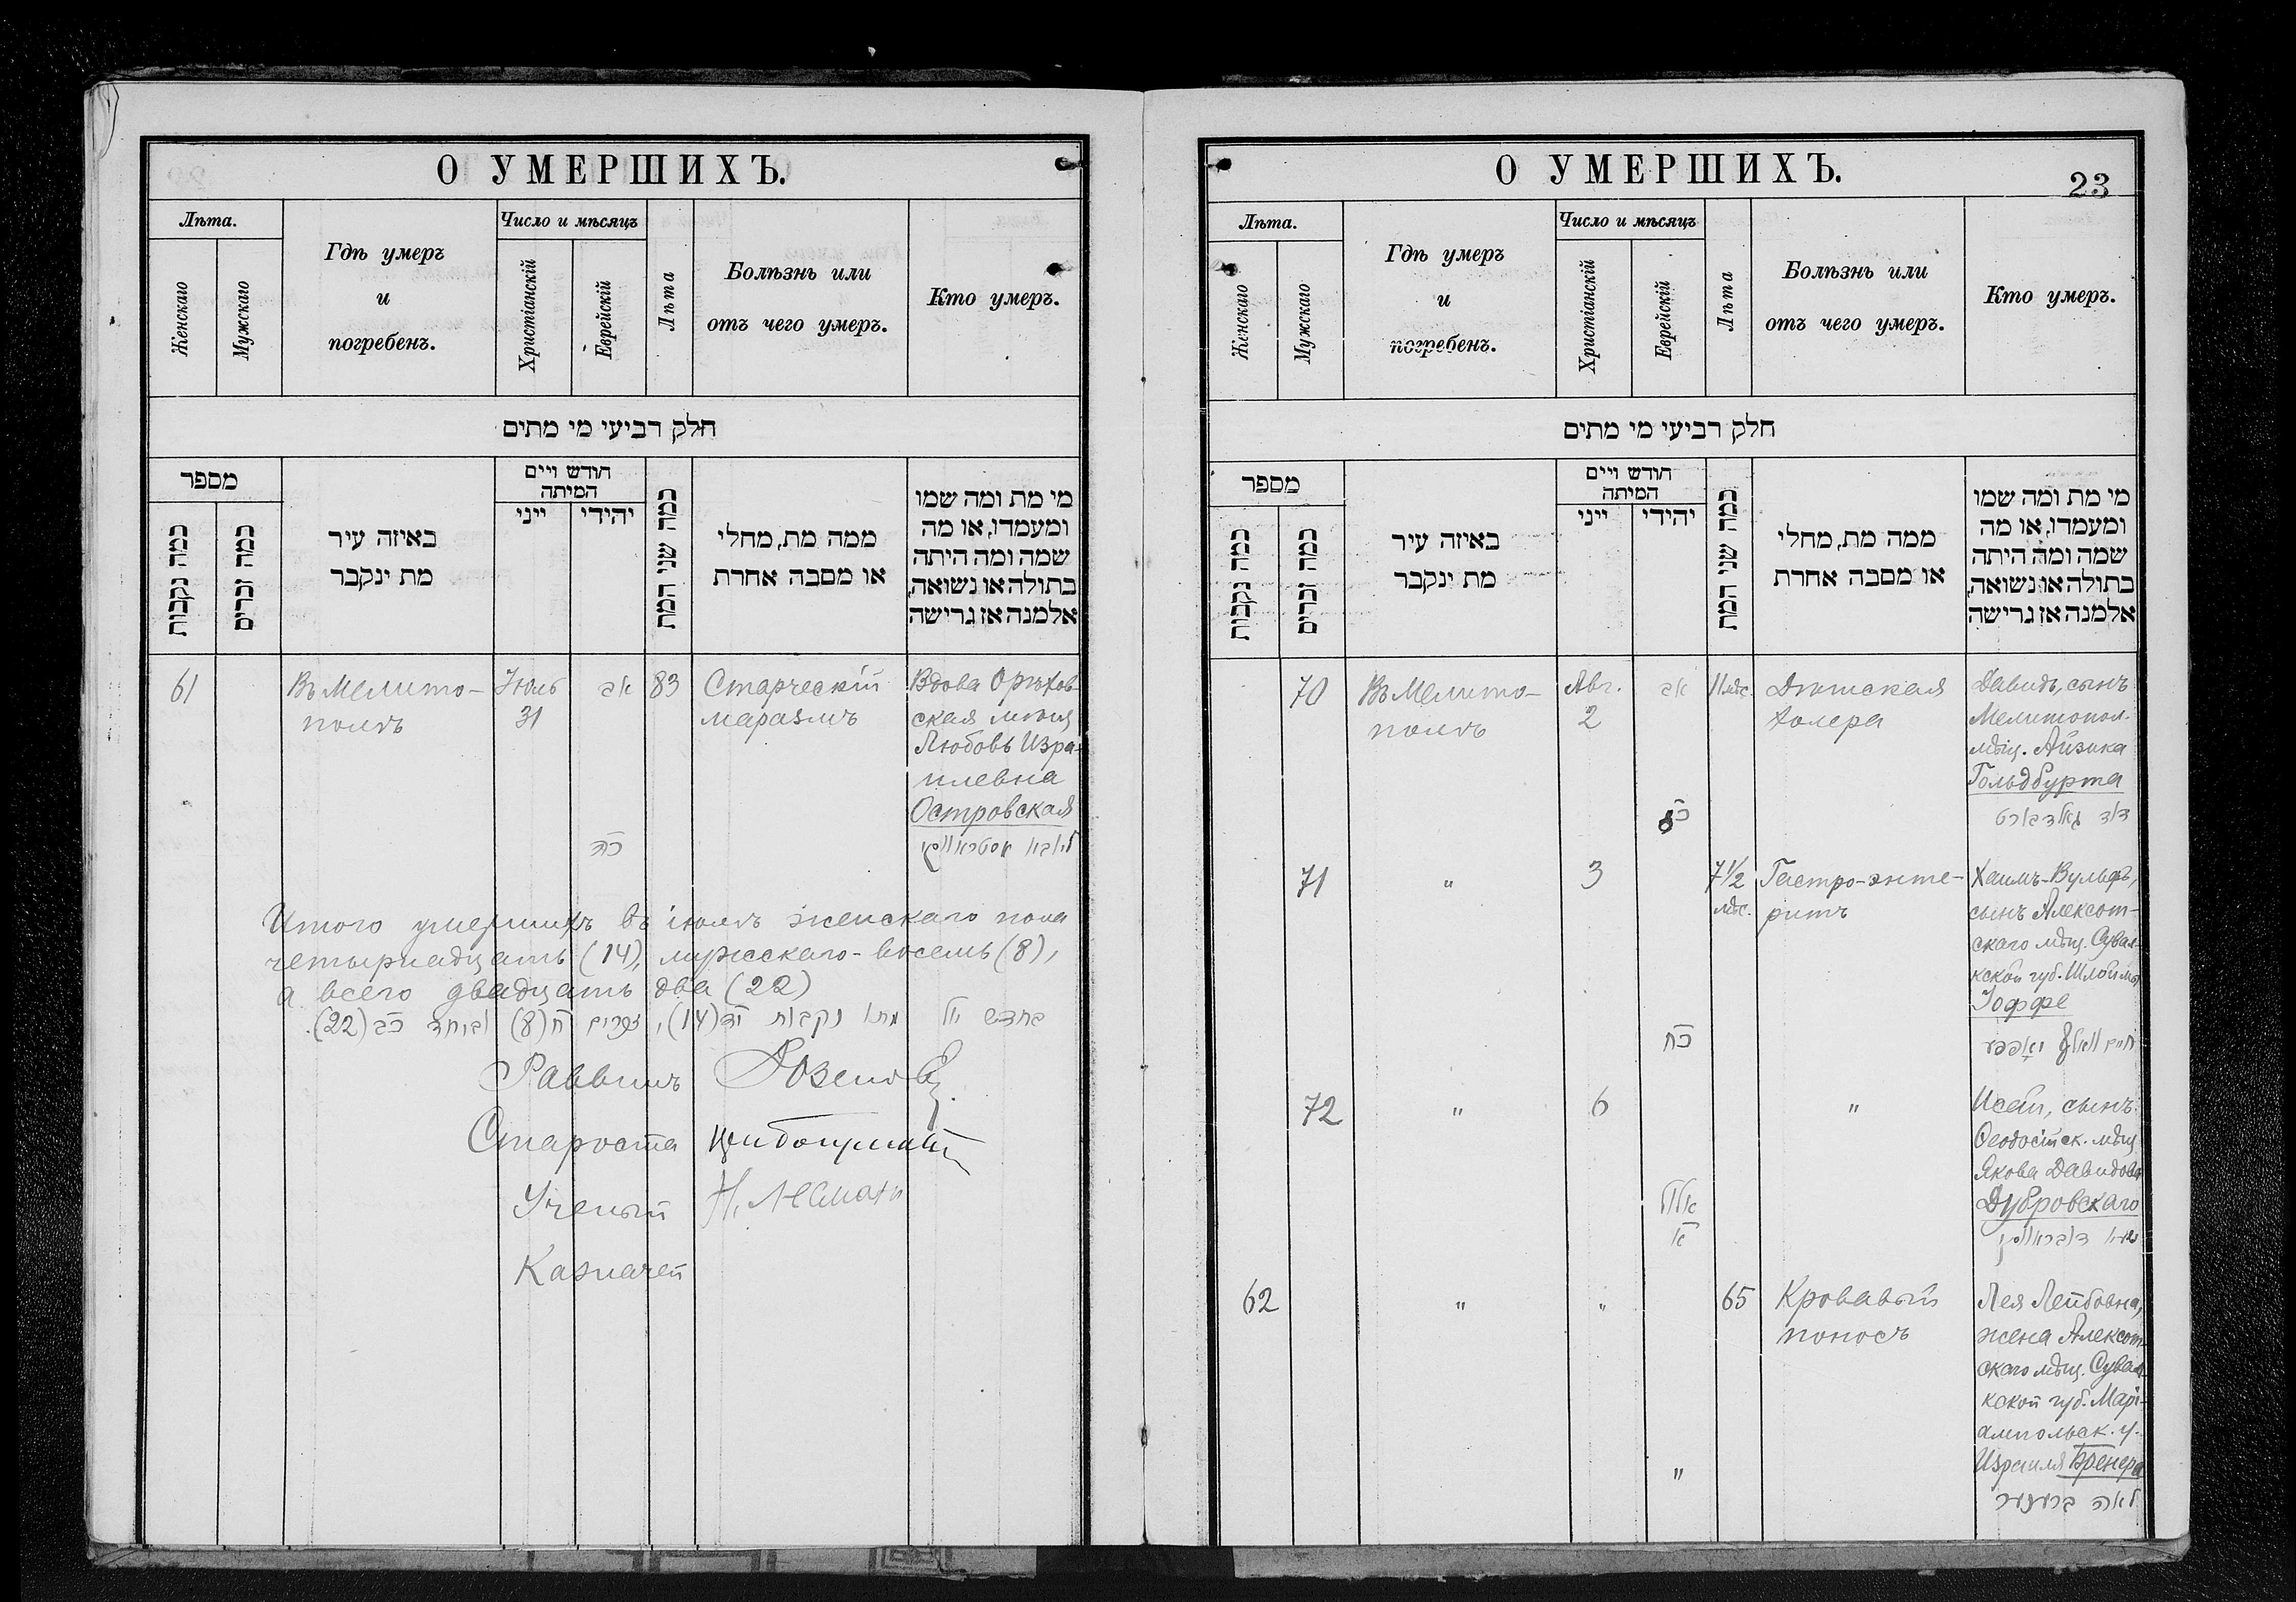 О УМЕРШИХЪ.
Лѣта.
Женскаго
Мужскаго
Гдѣ умеръ
и
погребенъ.
Число и мѣсяцъ
Христіанскій
Еврейскій
Лѣта
Болѣзнь или
отъ чего умеръ.
Кто умеръ.
חלק רביעי מי מתים
מספר
כמה נקבות
כמה זכרים
באיזה עיר
מת ינקבר
חודש ויים
המיתה
ייני
יהידי
כמה שני המת
ממה מת, מחלי
או מסבה אחרת
מי מת ומה שמו
ומעמדו, או מה
שמה ומה היתה
בתולה או נשואה,
אלמנה אז גרישה
61
Въ Мелито-
полѣ
Іюль
31
אב
כה
83
Старческій
маразмъ
Вдова Орѣхов-
ская мѣщ.
Любовь Изра-
илевна
Островская
Итого умершихъ въ іюлѣ женскаго пола
четырнадцать (14), мужскаго - восемь (8),
а всего двадцать два (22)
בחדש יולי מתו נקבות יד (14), זכרים ח (8) וביחד כב (22).
Раввинъ
Староста
Ученый
Казначей
О УМЕРШИХЪ.
23
Лѣта.
Женскаго
Мужскаго
Гдѣ умеръ
и
погребенъ.
Число и мѣсяцъ
Христіанскій
Еврейскій
Лѣта
Болѣзнь или
отъ чего умеръ.
Кто умеръ.
חלק רביעי מי מתים
מספר
כמה נקבות
כמה זכרים
באיזה עיר
מת ינקבר
חודש ויים
המיתה
ייני
יהידי
כמה שני המת
ממה מת, מחלי
או מסבה אחרת
מי מת ומה שמו
ומעמדו, או מה
שמה ומה היתה
בתולה או נשואה,
אלמנה אז גרישה
70
Въ Мелито-
полѣ
Авг.
2
אב
11 мѣс.
Дѣтская
холера
Давидъ, сынъ
Мелитопол.
мѣщ. Айзика
Гольдбурта
דוד גאלדבורט
71
"
3
כח
7 1/2
мѣс.
Гастро-энте-
ритъ
Хаимъ-Вульфъ,
сынъ Алексот-
скаго мѣщ. Сувал-
кской губ. Шлоимы
Іоффе
חיים וואלף יאפפע
72
"
6
אלול
א
"
Исай, сынъ
Ѳеодосійск. мѣщ.
Якова Давидова
Дубровскаго
62
"
"
"
65
Кровавый
поносъ
Лея Лейбовна,
жена Алексот-
скаго мѣщ. Сувал-
кской губ. Марі-
ампольск. у.
Израиля Бренера
לאה ברענער